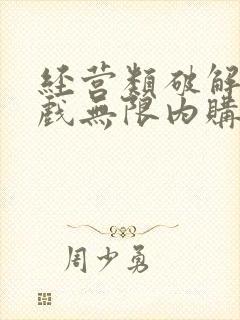 经营類破解
戲無限内購
周少勇